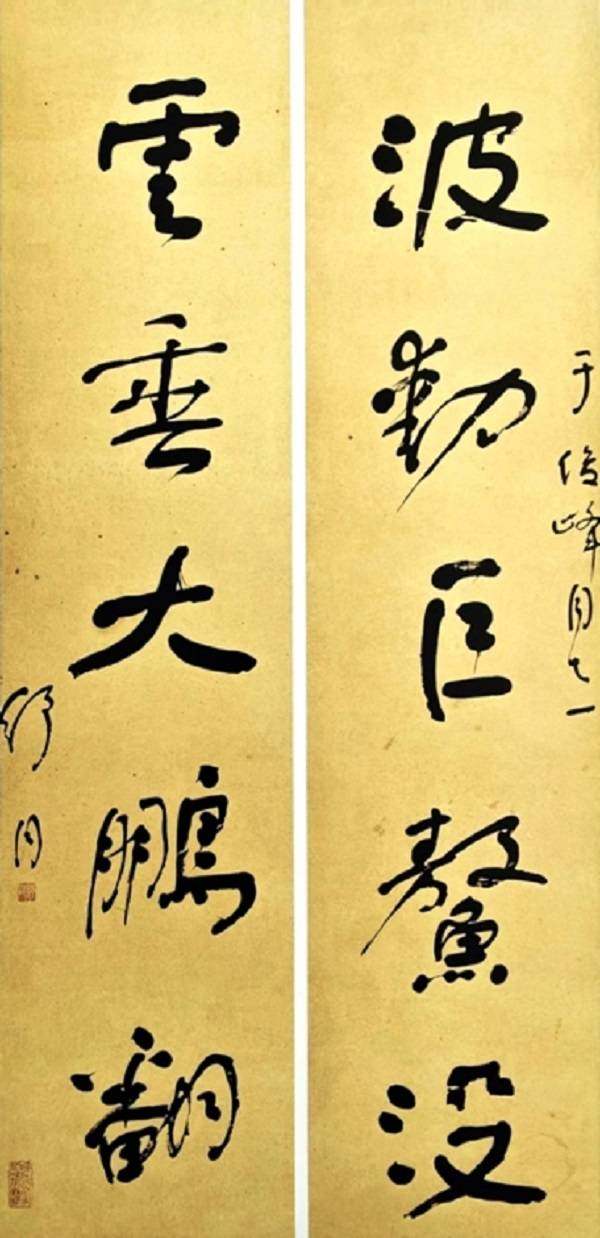 于俊峰同志
波動巨鰲没
雲垂大鵬翻
舒同